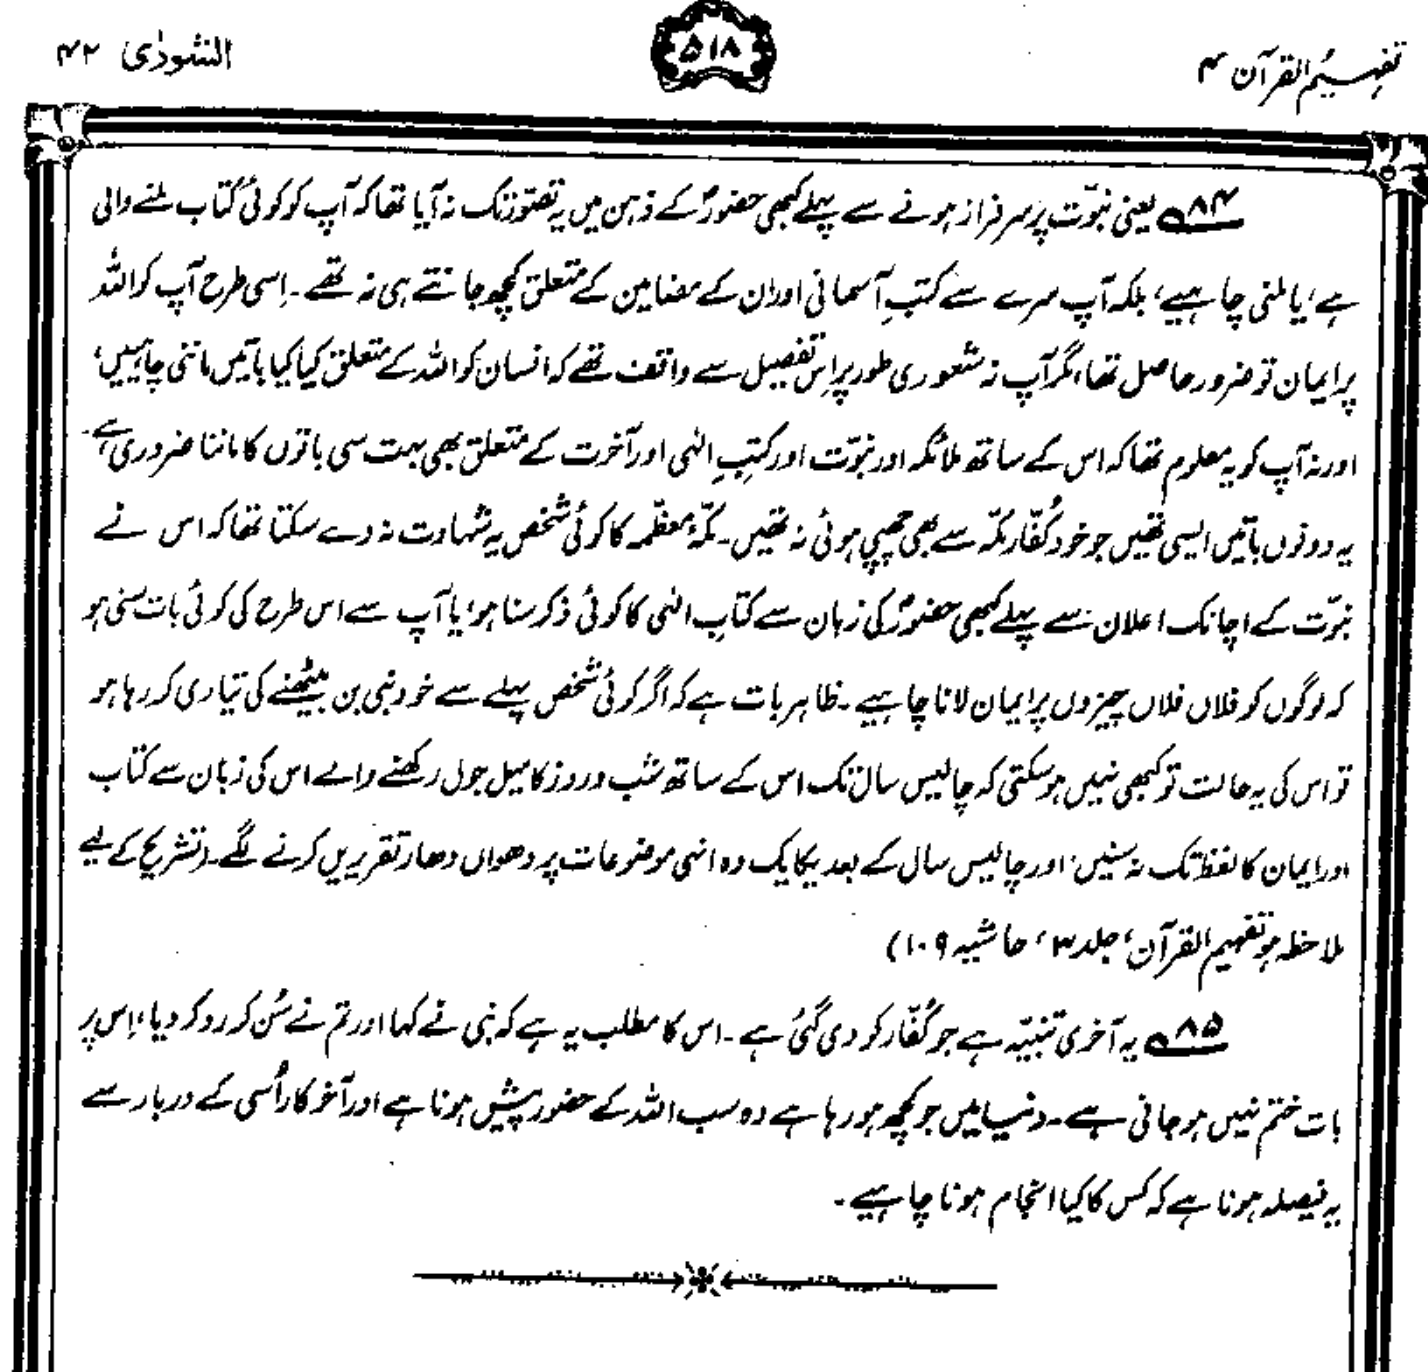 تفہیم القرآن ۴
۵۱۸
الشورٰی ۴۲
۸۴؎ یعنی نبوّت پر سرفراز ہونے سے پہلے کبھی حضورؐ کے ذہن میں یہ تصوّر تک نہ آیا تھا کہ آپ کو کوئی کتاب ملنے والی
ہے، یا ملنی چاہیے، بلکہ آپ سرے سے کتبِ آسمانی اور ان کے مضامین کے متعلق کچھ جانتے ہی نہ تھے۔ اِسی طرح آپ کو اللہ
پر ایمان تو ضرور حاصل تھا، مگر آپ نہ شعوری طور پر اِس تفصیل سے واقف تھے کہ انسان کو اللہ کے متعلق کیا کیا باتیں ماننی چاہییں،
اور نہ آپ کو یہ معلوم تھا کہ اس کے ساتھ ملائکہ اور نبوّت اور کتبِ الٰہی اور آخرت کے متعلق بھی بہت سی باتوں کا ماننا ضروری ہے۔
یہ دونوں باتیں ایسی تھیں جو خود کُفّارِ مکّہ سے بھی چھپی ہوئی نہ تھیں۔ مکّۂ معظّمہ کا کوئی شخص یہ شہادت نہ دے سکتا تھا کہ اس نے
نبوّت کے اچانک اعلان سے پہلے کبھی حضورؐ کی زبان سے کتابِ الٰہی کا کوئی ذکر سنا ہو، یا آپ سے اس طرح کی کوئی بات سنی ہو
کہ لوگوں کو فلاں فلاں چیزوں پر ایمان لانا چاہیے۔ ظاہر بات ہے کہ اگر کوئی شخص پہلے سے خود نبی بن بیٹھنے کی تیاری کر رہا ہو
تو اس کی یہ حالت تو کبھی نہیں ہو سکتی کہ چالیس سال تک اس کے ساتھ شب و روز کا میل جول رکھنے والے اس کی زبان سے کتاب
اور ایمان کا لفظ تک نہ سنیں، اور چالیس سال کے بعد یکایک وہ انہی موضوعات پر دھواں دھار تقریریں کرنے لگے۔ (تشریح کے لیے
ملاحظہ ہو تفہیم القرآن، جلد ۳، حاشیہ ۱۰۹)
۸۵؎ یہ آخری تنبیّہ ہے جو کُفّار کو دی گئی ہے۔ اس کا مطلب یہ ہے کہ نبی نے کہا اور تم نے سُن کر رد کر دیا، اِس پر
بات ختم نہیں ہو جاتی ہے۔ دنیا میں جو کچھ ہو رہا ہے وہ سب اللہ کے حضور پیش ہونا ہے اور آخر کار اُسی کے دربار سے
یہ فیصلہ ہونا ہے کہ کس کا کیا انجام ہونا چاہیے۔